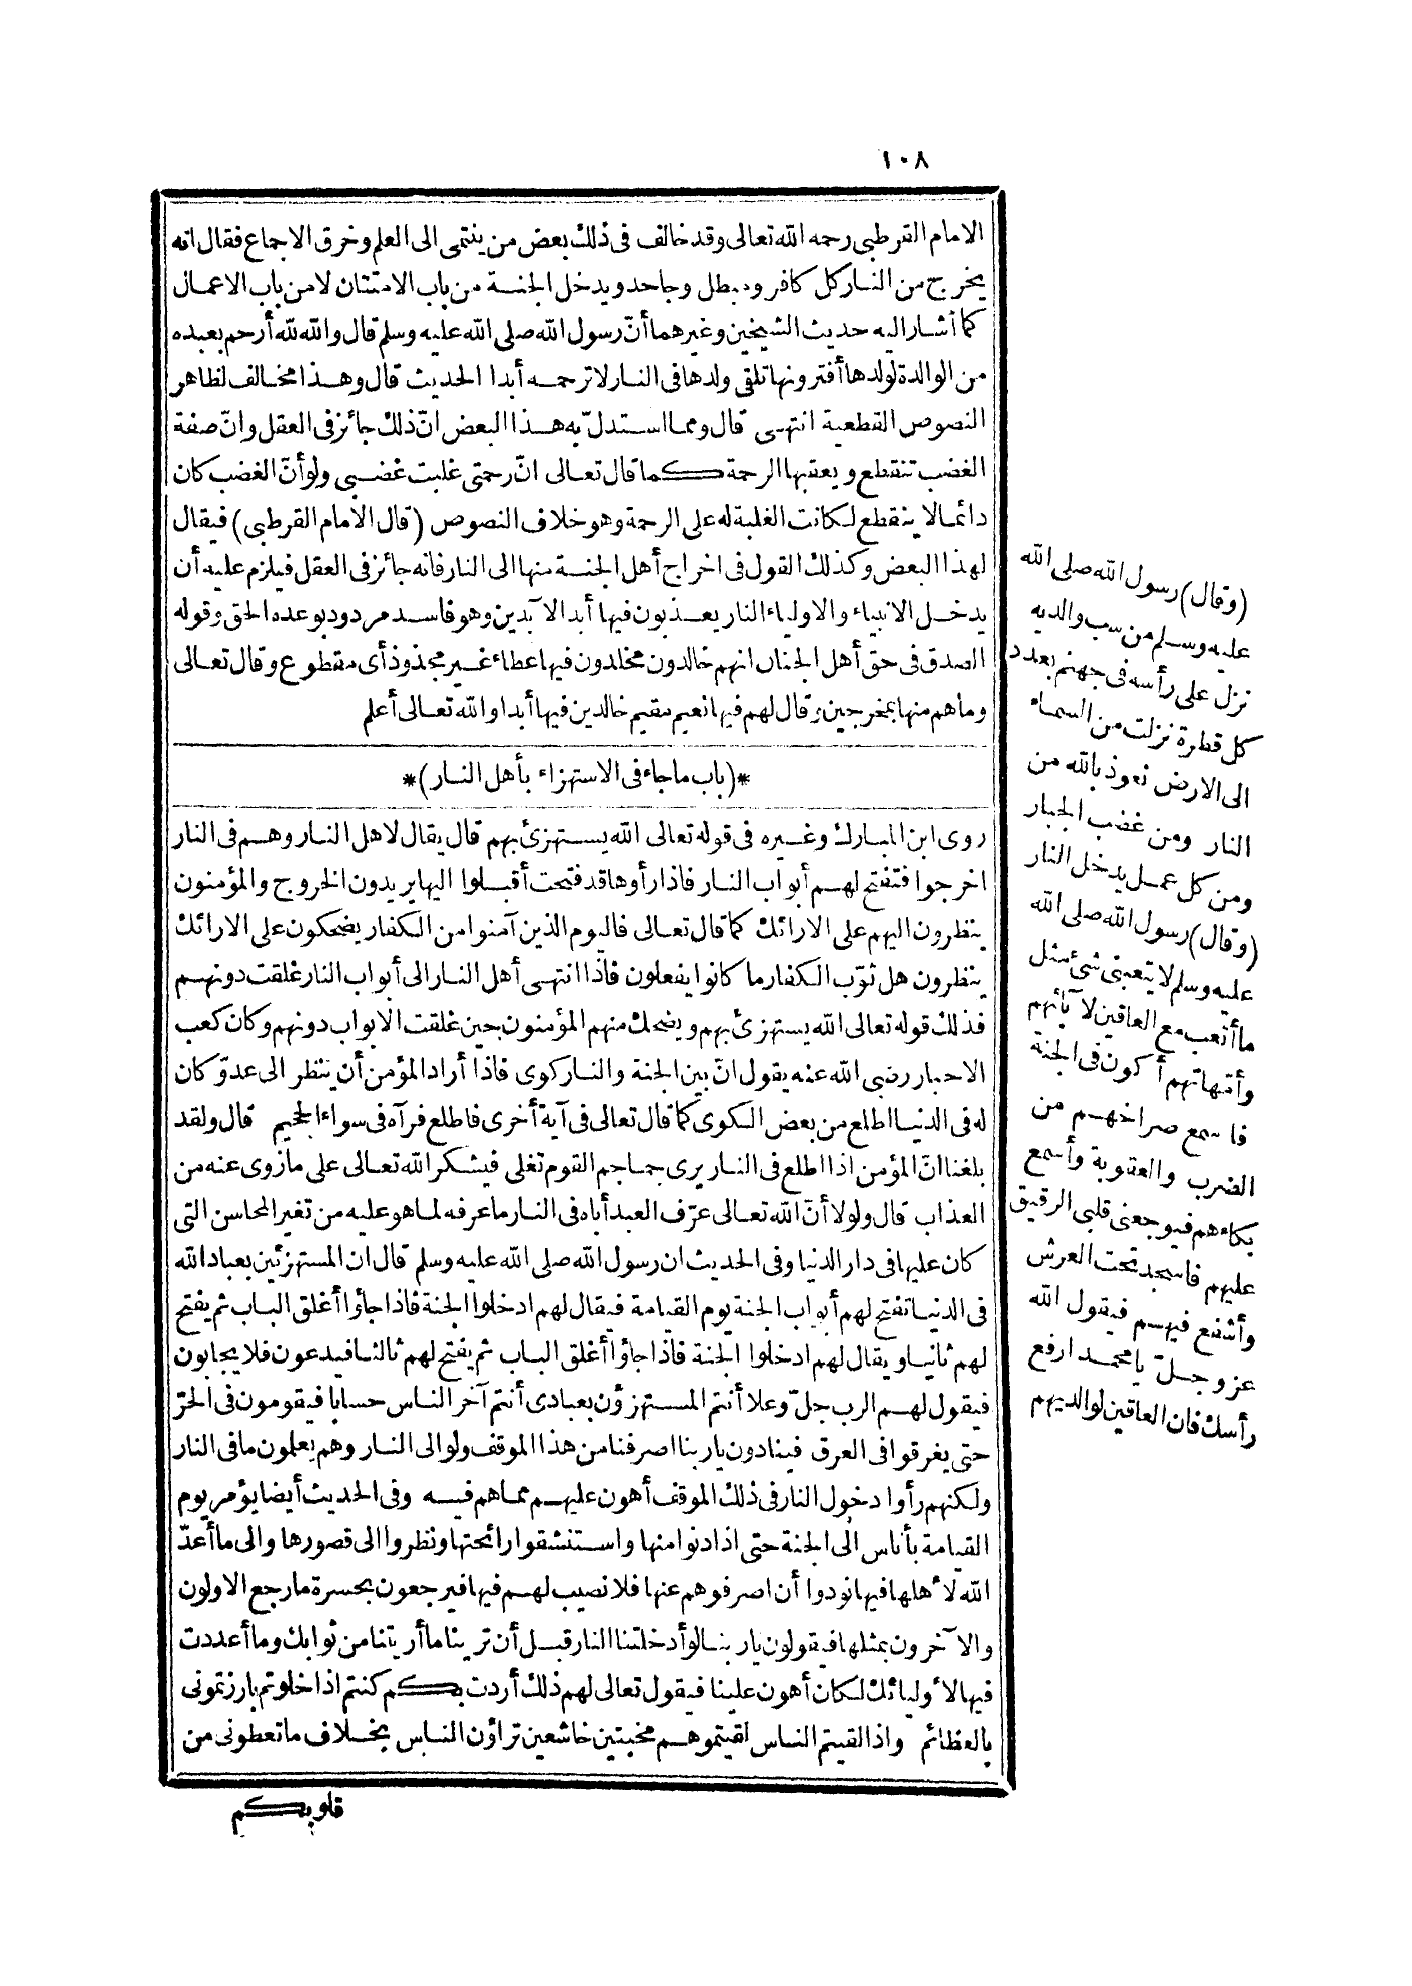 ١٠٨
الامام القرطبى رحمه الله تعالى وقد خالف فى ذلك بعض من ينتمى الى العلم وخرق الاجماع فقال انه
يخرج من النار كل كافر ومبطل وجاحد ويدخل الجنة من باب الامتنان لا من باب الاعمال
كما أشار اليه حديث الشيخين وغيرهما أنّ رسول الله صلى الله عليه وسلم قال والله لله أرحم بعبده
من الوالدة لولدها أفترونها تلقى ولدها فى النار لا ترحمه أبدا الحديث قال وهذا مخالف لظاهر
النصوص القطعية انتهى قال ومما استدلّ به هذا البعض انّ ذلك جائز فى العقل وانّ صفة
الغضب تنقطع ويعقبها الرحمة كما قال تعالى انّ رحمتى غلبت غضبى ولو أنّ الغضب كان
دائما لا ينقطع لكانت الغلبة له على الرحمة وهو خلاف النصوص (قال الامام القرطبى) فيقال
لهذا البعض وكذلك القول فى اخراج أهل الجنة منها الى النار فانه جائز فى العقل فيلزم عليه أن
يدخل الانبياء والاولياء النار يعذبون فيها أبد الآبدين وهو فاسد مردود بوعده الحق وقوله
الصدق فى حق أهل الجنان انهم خالدون مخلدون فيها عطاء غير مجذوذ أى مقطوع وقال تعالى
وما هم منها بمخرجين وقال لهم فيها نعيم مقيم خالدين فيها أبدا والله تعالى أعلم
*(باب ما جاء فى الاستهزاء بأهل النار)*
روى ابن المبارك وغيره فى قوله تعالى الله يستهزئ بهم قال يقال لاهل النار وهم فى النار
اخرجوا فتفتح لهم أبواب النار فاذا رأوها قد فتحت أقبلوا اليها يريدون الخروج والمؤمنون
ينظرون اليهم على الارائك كما قال تعالى فاليوم الذين آمنوا من الكفار يضحكون على الارائك
ينظرون هل ثوّب الكفار ما كانوا يفعلون فاذا انتهى أهل النار الى أبواب النار غلقت دونهم
فذلك قوله تعالى الله يستهزئ بهم ويضحك منهم المؤمنون حين غلقت الابواب دونهم وكان كعب
الاحبار رضى الله عنه يقول انّ بين الجنة والنار كوى فاذا أراد المؤمن أن ينظر الى عدوّ كان
له فى الدنيا اطلع من بعض الكوى كما قال تعالى فى آية أخرى فاطلع فرآه فى سواء الجحيم قال ولقد
بلغنا انّ المؤمن اذا اطلع فى النار يرى جماجم القوم تغلى فيشكر الله تعالى على ما زوى عنه من
العذاب قال ولولا أنّ الله تعالى عرّف العبد أباه فى النار ما عرفه لما هو عليه من تغير المحاسن التى
كان عليها فى دار الدنيا وفى الحديث ان رسول الله صلى الله عليه وسلم قال ان المستهزئين بعباد الله
فى الدنيا تفتح لهم أبواب الجنة يوم القيامة فيقال لهم ادخلوا الجنة فاذا جاؤا أغلق الباب ثم يفتح
لهم ثانيا ويقال لهم ادخلوا الجنة فاذا جاؤا أغلق الباب ثم يفتح لهم ثالثا فيدعون فلا يجابون
فيقول لهم الرب جلّ وعلا أنتم المستهزؤن بعبادى أنتم آخر الناس حسابا فيقومون فى الحرّ
حتى يغرقوا فى العرق فينادون يا ربنا اصرفنا من هذا الموقف ولو الى النار وهم يعلمون ما فى النار
ولكنهم رأوا دخول النار فى ذلك الموقف أهون عليهم مما هم فيه وفى الحديث أيضا يؤمر يوم
القيامة بأناس الى الجنة حتى اذا دنوا منها واستنشقوا رائحتها ونظروا الى قصورها والى ما أعدّ
الله لأهلها فيها نودوا أن اصرفوهم عنها فلا نصيب لهم فيها فيرجعون بحسرة ما رجع الاولون
والآخرون بمثلها فيقولون يا ربنا لو أدخلتنا النار قبل أن ترينا ما أريتنا من ثوابك وما أعددت
فيها لأوليائك لكان أهون علينا فيقول تعالى لهم ذلك أردت بكم كنتم اذا خلوتم بارزتمونى
بالعظائم واذا لقيتم الناس لقيتموهم مخبتين خاشعين تراؤن الناس بخلاف ما تعطونى من
قلوبكم
(وقال) رسول الله صلى الله
عليه وسلم من سب والديه
نزل على رأسه فى جهنم بعدد
كل قطرة نزلت من السماء
الى الارض نعوذ بالله من
النار ومن غضب الجبار
ومن كل عمل يدخل النار
(وقال) رسول الله صلى الله
عليه وسلم لا يتعبنى شئ مثل
ما أتعب مع العاقين لآبائهم
وأمّهاتهم أكون فى الجنة
فاسمع صراخهم من
الضرب والعقوبة وأسمع
بكاءهم فيوجعنى قلبى الرقيق
عليهم فاسجد تحت العرش
وأشفع فيهم فيقول الله
عز وجلّ يا محمد ارفع
رأسك فان العاقين لوالديهم